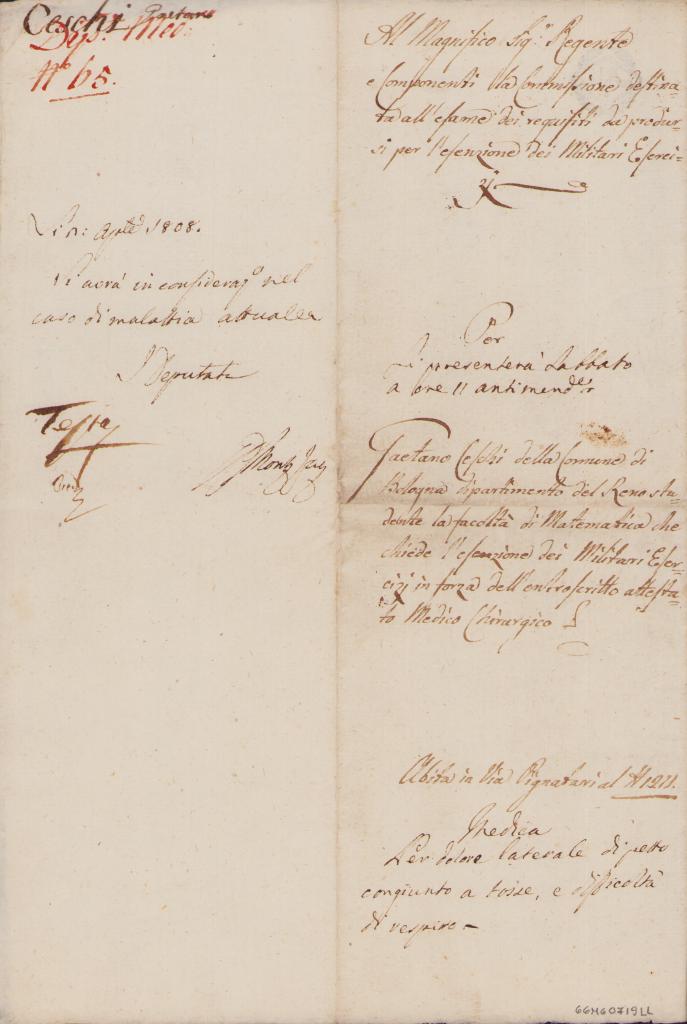 Ceschi Gaetano
Dep. Med.
N° 65.
Li 2: Aple 1808.
Si avrà in consideraz.e nel
caso di malattia attuale
I Deputati
Testa
Al Magnifico Sig.r Regente
e Componenti la Commissione destina-
ta all'esame dei requisiti da produr-
si per l'esenzione dei Militari Eserci-
zj
Per
Si presenterà Sabbato
a ore 11 antimerid.e
Gaetano Ceschi della Comune di
Bologna dipartimento del Reno stu-
dente la facoltà di Matematica che
chiede l'esenzione dei Militari Eser-
cizj in forza dell'entroscritto attesta-
to Medico Chirurgico
Abita in Via Pignattari al N 1211.
Medica
Per dolore laterale di petto
congiunto a tosse, e difficoltà
di respiro -
66H60719LL